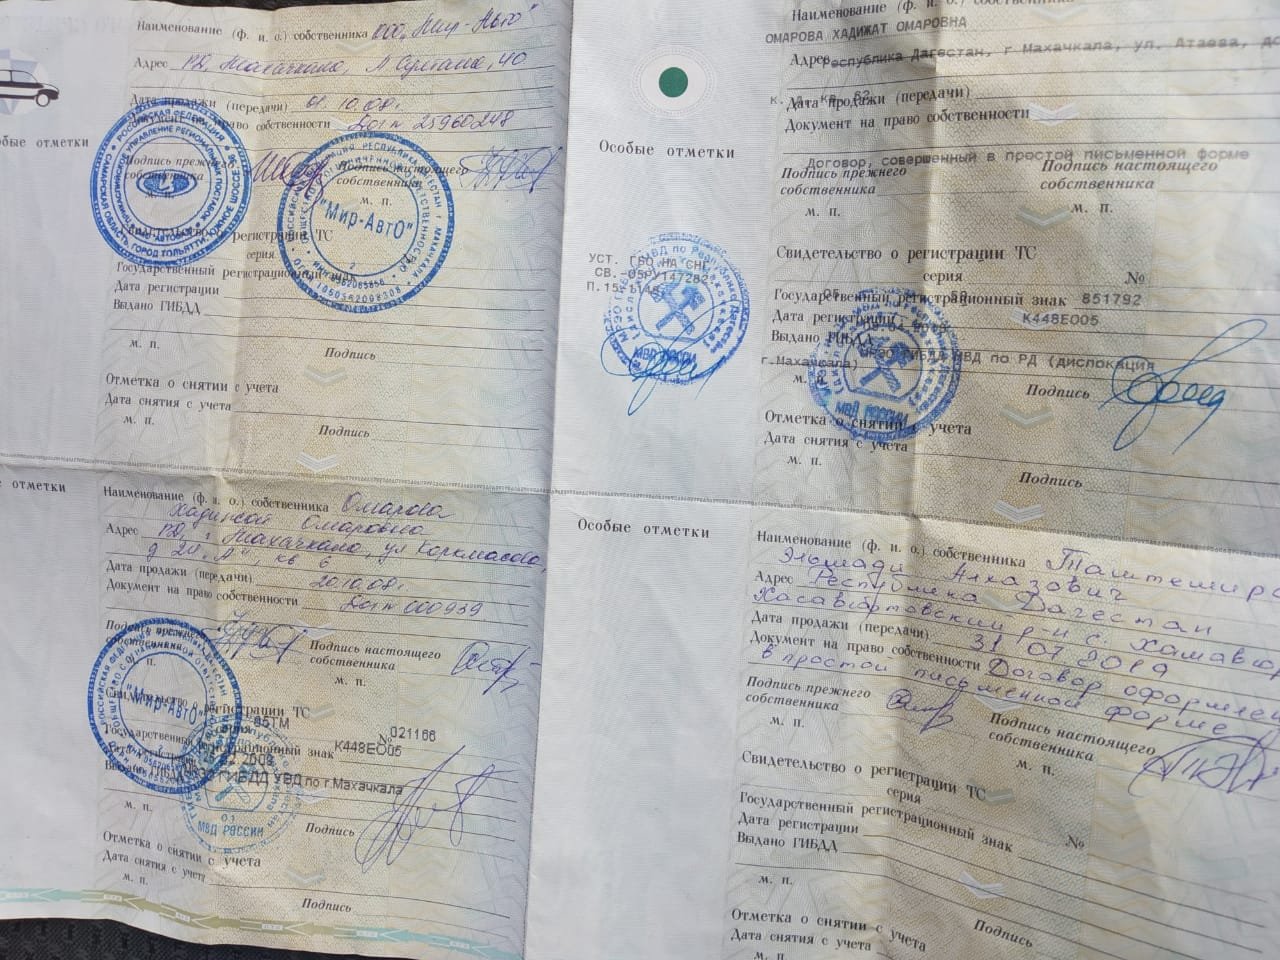 Наименование (ф. и. о.) собственника ООО „Мир-Авто"
Адрес РД, Махачкала, А. Султана, 40
Дата продажи (передачи) 01.10.08г.
Документ на право собственности Дог № 25960248
Подпись прежнего собственника
Подпись настоящего собственника
м. п.
"Мир-АвтО"
Свидетельство о регистрации ТС
серия
Государственный регистрационный знак
Дата регистрации
Выдано ГИБДД
м. п.
Подпись
Отметка о снятии с учета
Дата снятия с учета
м. п.
Подпись
Наименование (ф. и. о.) собственника Омарова
Хадижат Омаровна
Адрес РД, г. Махачкала, ул Коркмасова,
д 24 „А", кв 6
Дата продажи (передачи) 20.10.08г.
Документ на право собственности Дог № 000939
Подпись прежнего собственника
Подпись настоящего собственника
м. п.
м. п.
"Мир-АвтО"
о регистрации ТС
05ТМ № 021166
Государственный регистрационный знак К448ЕО05
ГИБДД УВД по г.Махачкала
МВД РОССИИ
м. п.
Подпись
Отметка о снятии с учета
Дата снятия с учета
м. п.
Подпись
Особые отметки
УСТ. ГБО НА СНГ
МВД РОССИИ
Наименование (ф. и. о.) собственника
ОМАРОВА ХАДИЖАТ ОМАРОВНА
Адрес
Республика Дагестан, г Махачкала, ул. Атаева,
Дата продажи (передачи)
Документ на право собственности
Договор, совершенный в простой письменной форме
Подпись прежнего собственника
Подпись настоящего собственника
м. п.
м. п.
Свидетельство о регистрации ТС
серия №
Государственный регистрационный знак 851792
Дата регистрации К448ЕО05
Выдано ГИБДД
МРЭО ГИБДД МВД по РД (дислокация
г.Махачкала)
м. п.
Подпись
МВД РОССИИ
Отметка о снятии с учета
Дата снятия с учета
м. п.
Подпись
Особые отметки
Наименование (ф. и. о.) собственника
Алхазович
Адрес Республика Дагестан
Хасавюртовский р-н с.
Дата продажи (передачи) 31 07 2019
Документ на право собственности Договор
в простой письменной форме
Подпись прежнего собственника
Подпись настоящего собственника
м. п.
м. п.
Свидетельство о регистрации ТС
серия №
Государственный регистрационный знак
Дата регистрации
Выдано ГИБДД
м. п.
Подпись
Отметка о снятии с учета
Дата снятия с учета
м. п.